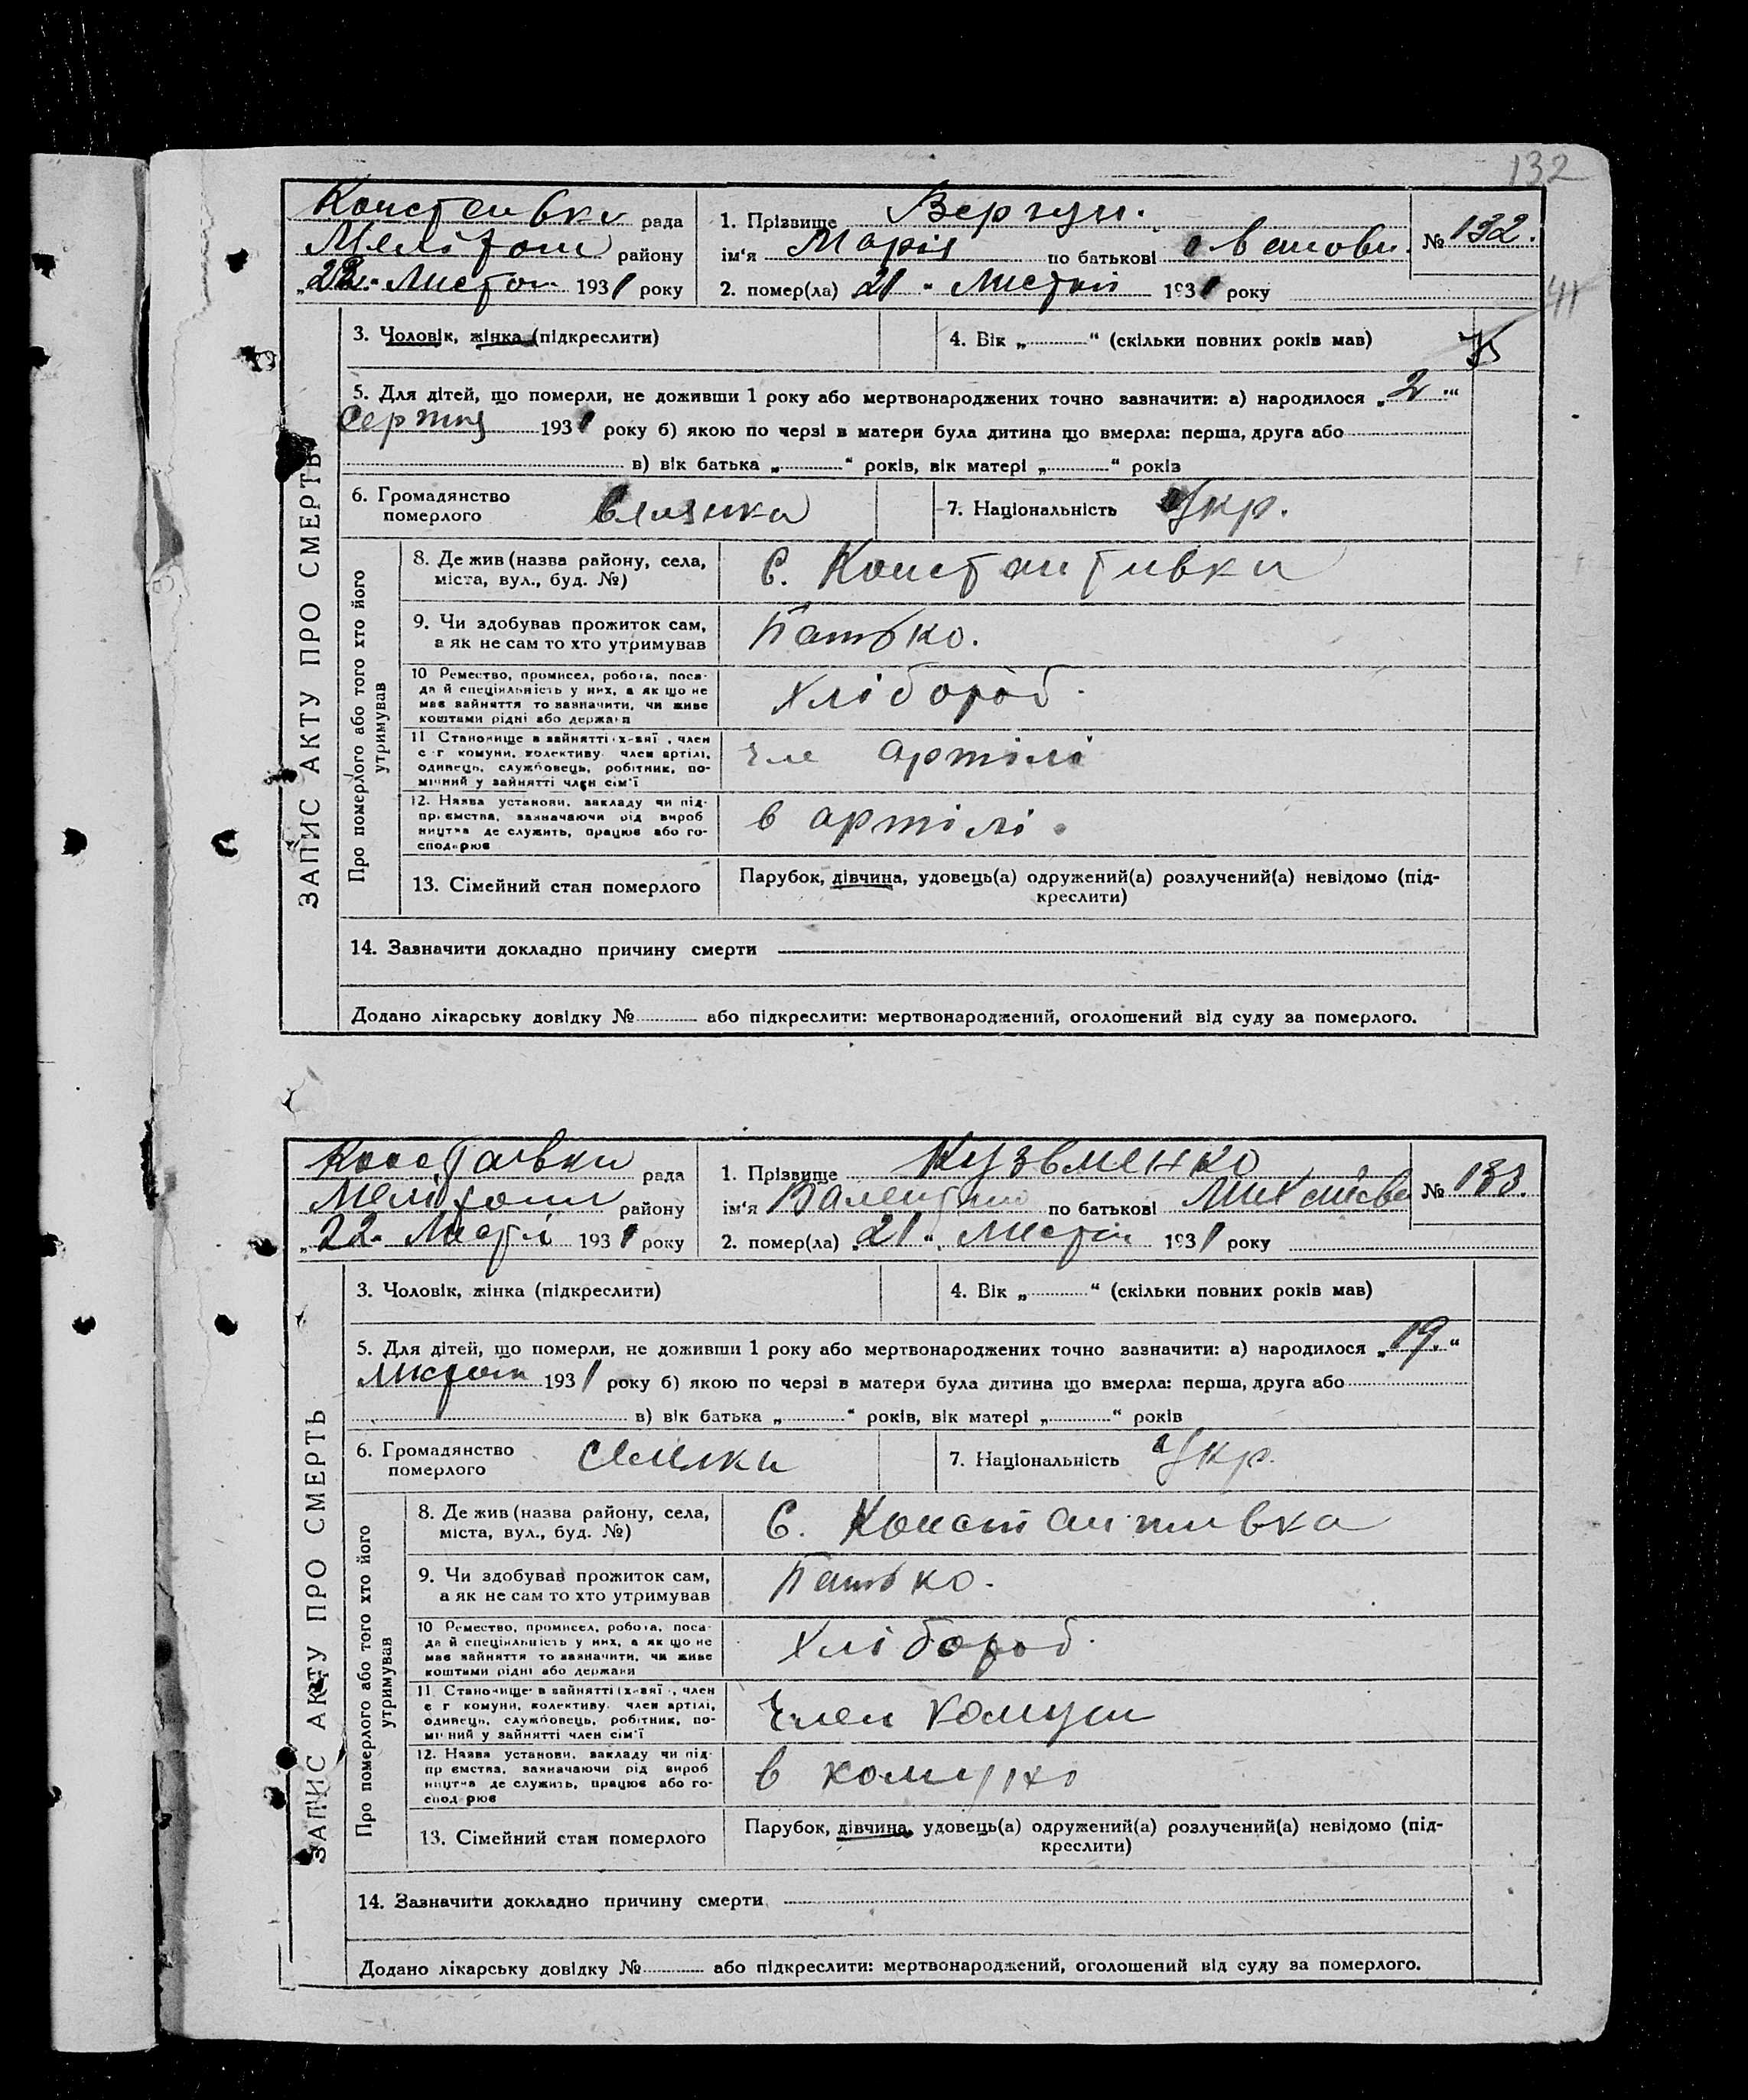 132
рада
1. Прізвище Вергун.
№ 132.
району
ім'я Марія по батькові
1931 року
2. помер(ла) 21 1931 року
41
3. Чоловік, жінка (підкреслити)
4. Вік „ “ (скільки повних років мав)
5. Для дітей, що померли, не доживши 1 року або мертвонароджених точно зазначити: а) народилося „2“
Серпня 1931 року б) якою по черзі в матери була дитина що вмерла: перша, друга або
в) вік батька „ “ років, вік матері „ “ років
6. Громадянство
померлого
7. Національність Укр.
ЗАПИС АКТУ ПРО СМЕРТЬ
Про померлого або того хто його
утримував
8. Де жив (назва району, села,
міста, вул., буд. №)
С. Константивки
9. Чи здобував прожиток сам,
а як не сам то хто утримував
Батько.
10 Ремество, промисел, робота, поса-
да й спеціяльність у них, а як що не
має зайняття то зазначити, чи живе
коштами рідні або держави
Хлібороб.
11 Становище в зайнятті (х-вяї , член
с г комуни, колективу, член артілі,
одинець, службовець, робітник, по-
мічний у зайнятті член сім'ї
Чле артілі
12. Назва установи, закладу чи під-
приємства, зазначаючи рід вироб
ництва де служить, працює або го-
сподарює
в артілі.
13. Сімейний стан померлого
Парубок, дівчина, удовець(а) одружений(а) розлучений(а) невідомо (під-
креслити)
14. Зазначити докладно причину смерти
Додано лікарську довідку № або підкреслити: мертвонароджений, оголошений від суду за померлого.
рада
1. Прізвище Кузьменко
№ 133.
району
ім'я Валентина по батькові
„22“ 1931 року
2. помер(ла) „21“ 1931 року
3. Чоловік, жінка (підкреслити)
4. Вік „ “ (скільки повних років мав)
5. Для дітей, що померли, не доживши 1 року або мертвонароджених точно зазначити: а) народилося „19.“
1931 року б) якою по черзі в матери була дитина що вмерла: перша, друга або
в) вік батька „ “ років, вік матері „ “ років
6. Громадянство
померлого
7. Національність Укр.
ЗАПИС АКТУ ПРО СМЕРТЬ
Про померлого або того хто його
утримував
8. Де жив (назва району, села,
міста, вул., буд. №)
С. Константивка
9. Чи здобував прожиток сам,
а як не сам то хто утримував
Батько.
10 Ремество, промисел, робота, поса-
да й спеціяльність у них, а як що не
має зайняття то зазначити, чи живе
коштами рідні або держави
Хлібороб.
11 Становище в зайнятті (х-вяї , член
с г комуни, колективу, член артілі,
одинець, службовець, робітник, по-
мічний у зайнятті член сім'ї
Член комуни
12. Назва установи, закладу чи під-
приємства, зазначаючи рід вироб
ництва де служить, працює або го-
сподарює
в комуні
13. Сімейний стан померлого
Парубок, дівчина, удовець(а) одружений(а) розлучений(а) невідомо (під-
креслити)
14. Зазначити докладно причину смерти
Додано лікарську довідку № або підкреслити: мертвонароджений, оголошений від суду за померлого.